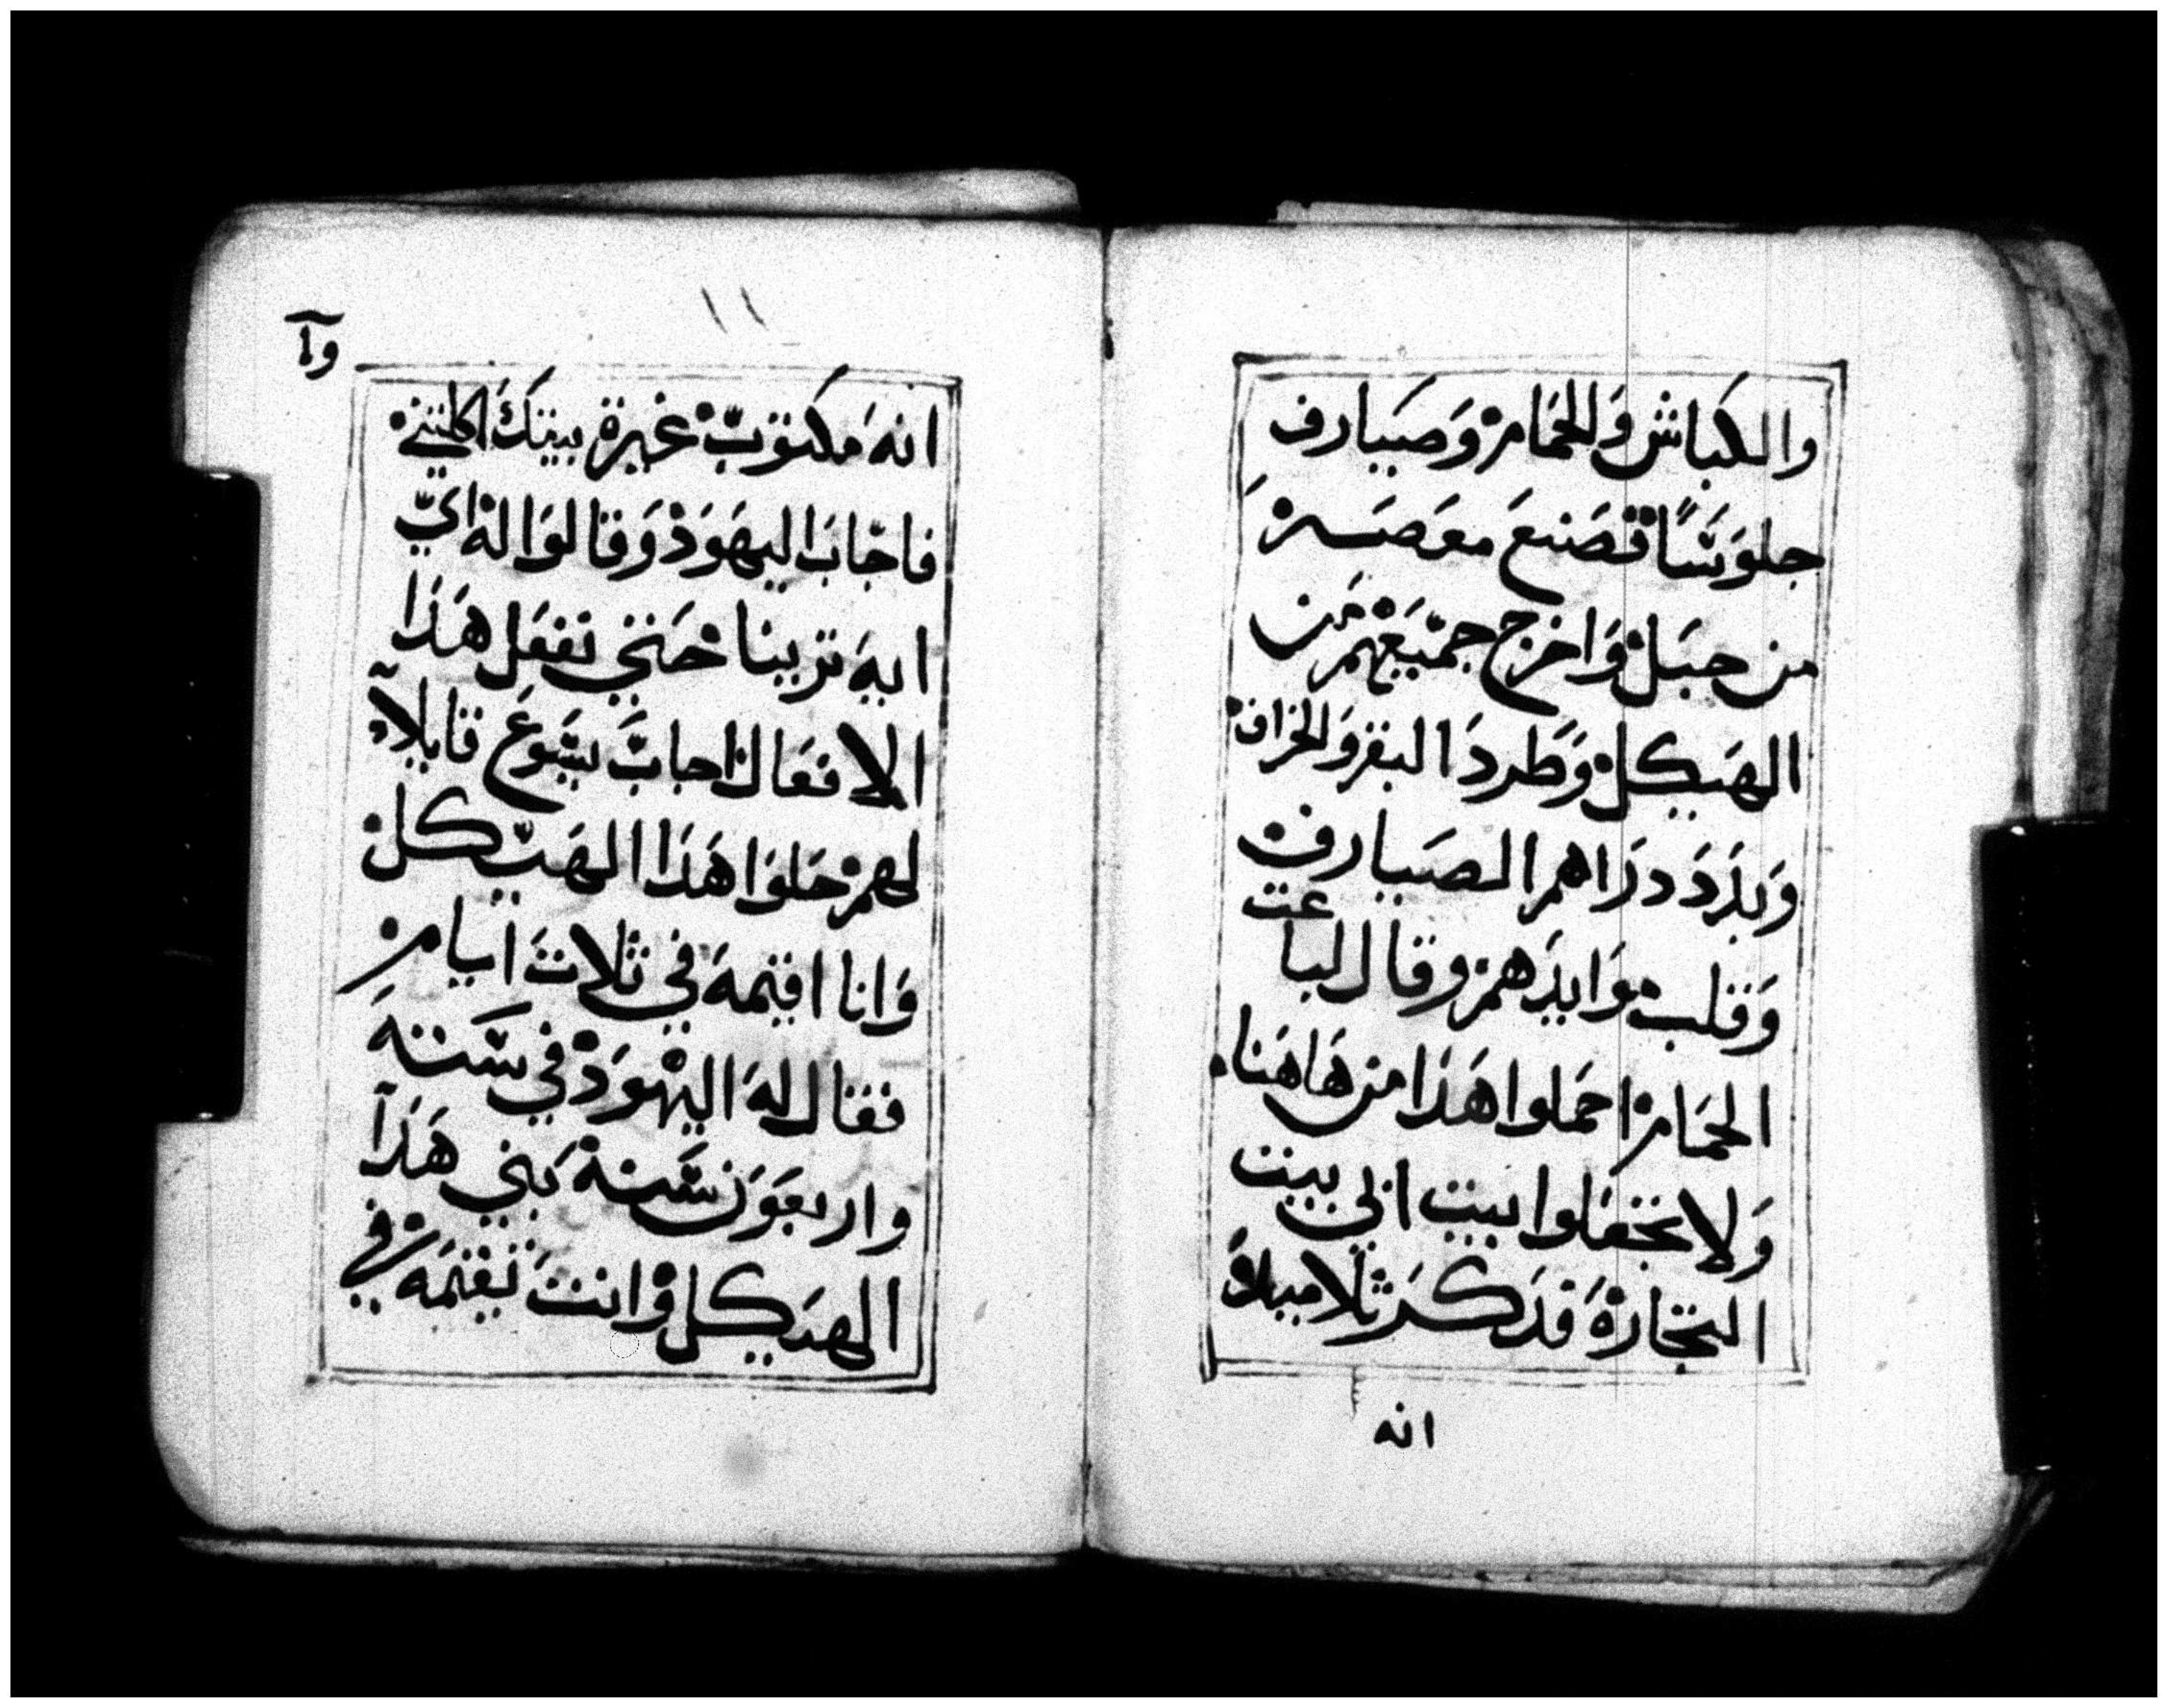 والكباش وَالحمَامْ وَصَيَارف
جلوَسًّا فصَنعَ معَصَرهْ
من حبَلْ وَاخرج جميَعْهمْ مَن
الهَيكلْ وَطَردَ البقر وَالخراف
وَبدَّدَ درَاهم الصيَارف
وَقلبْ مَوَايدَهمْ وقال لباعت
الحمَامْ احمَلوا هَذا من هَاهَنا
وَلا تجعَلوا بيت ابي بيت
التجَارهْ فذكَر تلاميدهْ
انه
١١
وآ
انهَ مكتوبْ غيرة بيتكَ اكلتني
فاجابَ اليهَوَدْ وَقالوَا لهْ اي
ايهَ ترينا حَتي تفعَل هَذا
الافعَالْ اجابَ يسَوعَ قايلاً
لهمْ حَلوَا هَذا الهَيكلْ
وَانا اقيمهَ في تلاتَ ايامْ
فقال لهَ اليْهوَدْ في ستهَ
واربعَوَن سَنهْ بَني هَذا
الهيَكلْ وَانتَ تقيمَهْ في